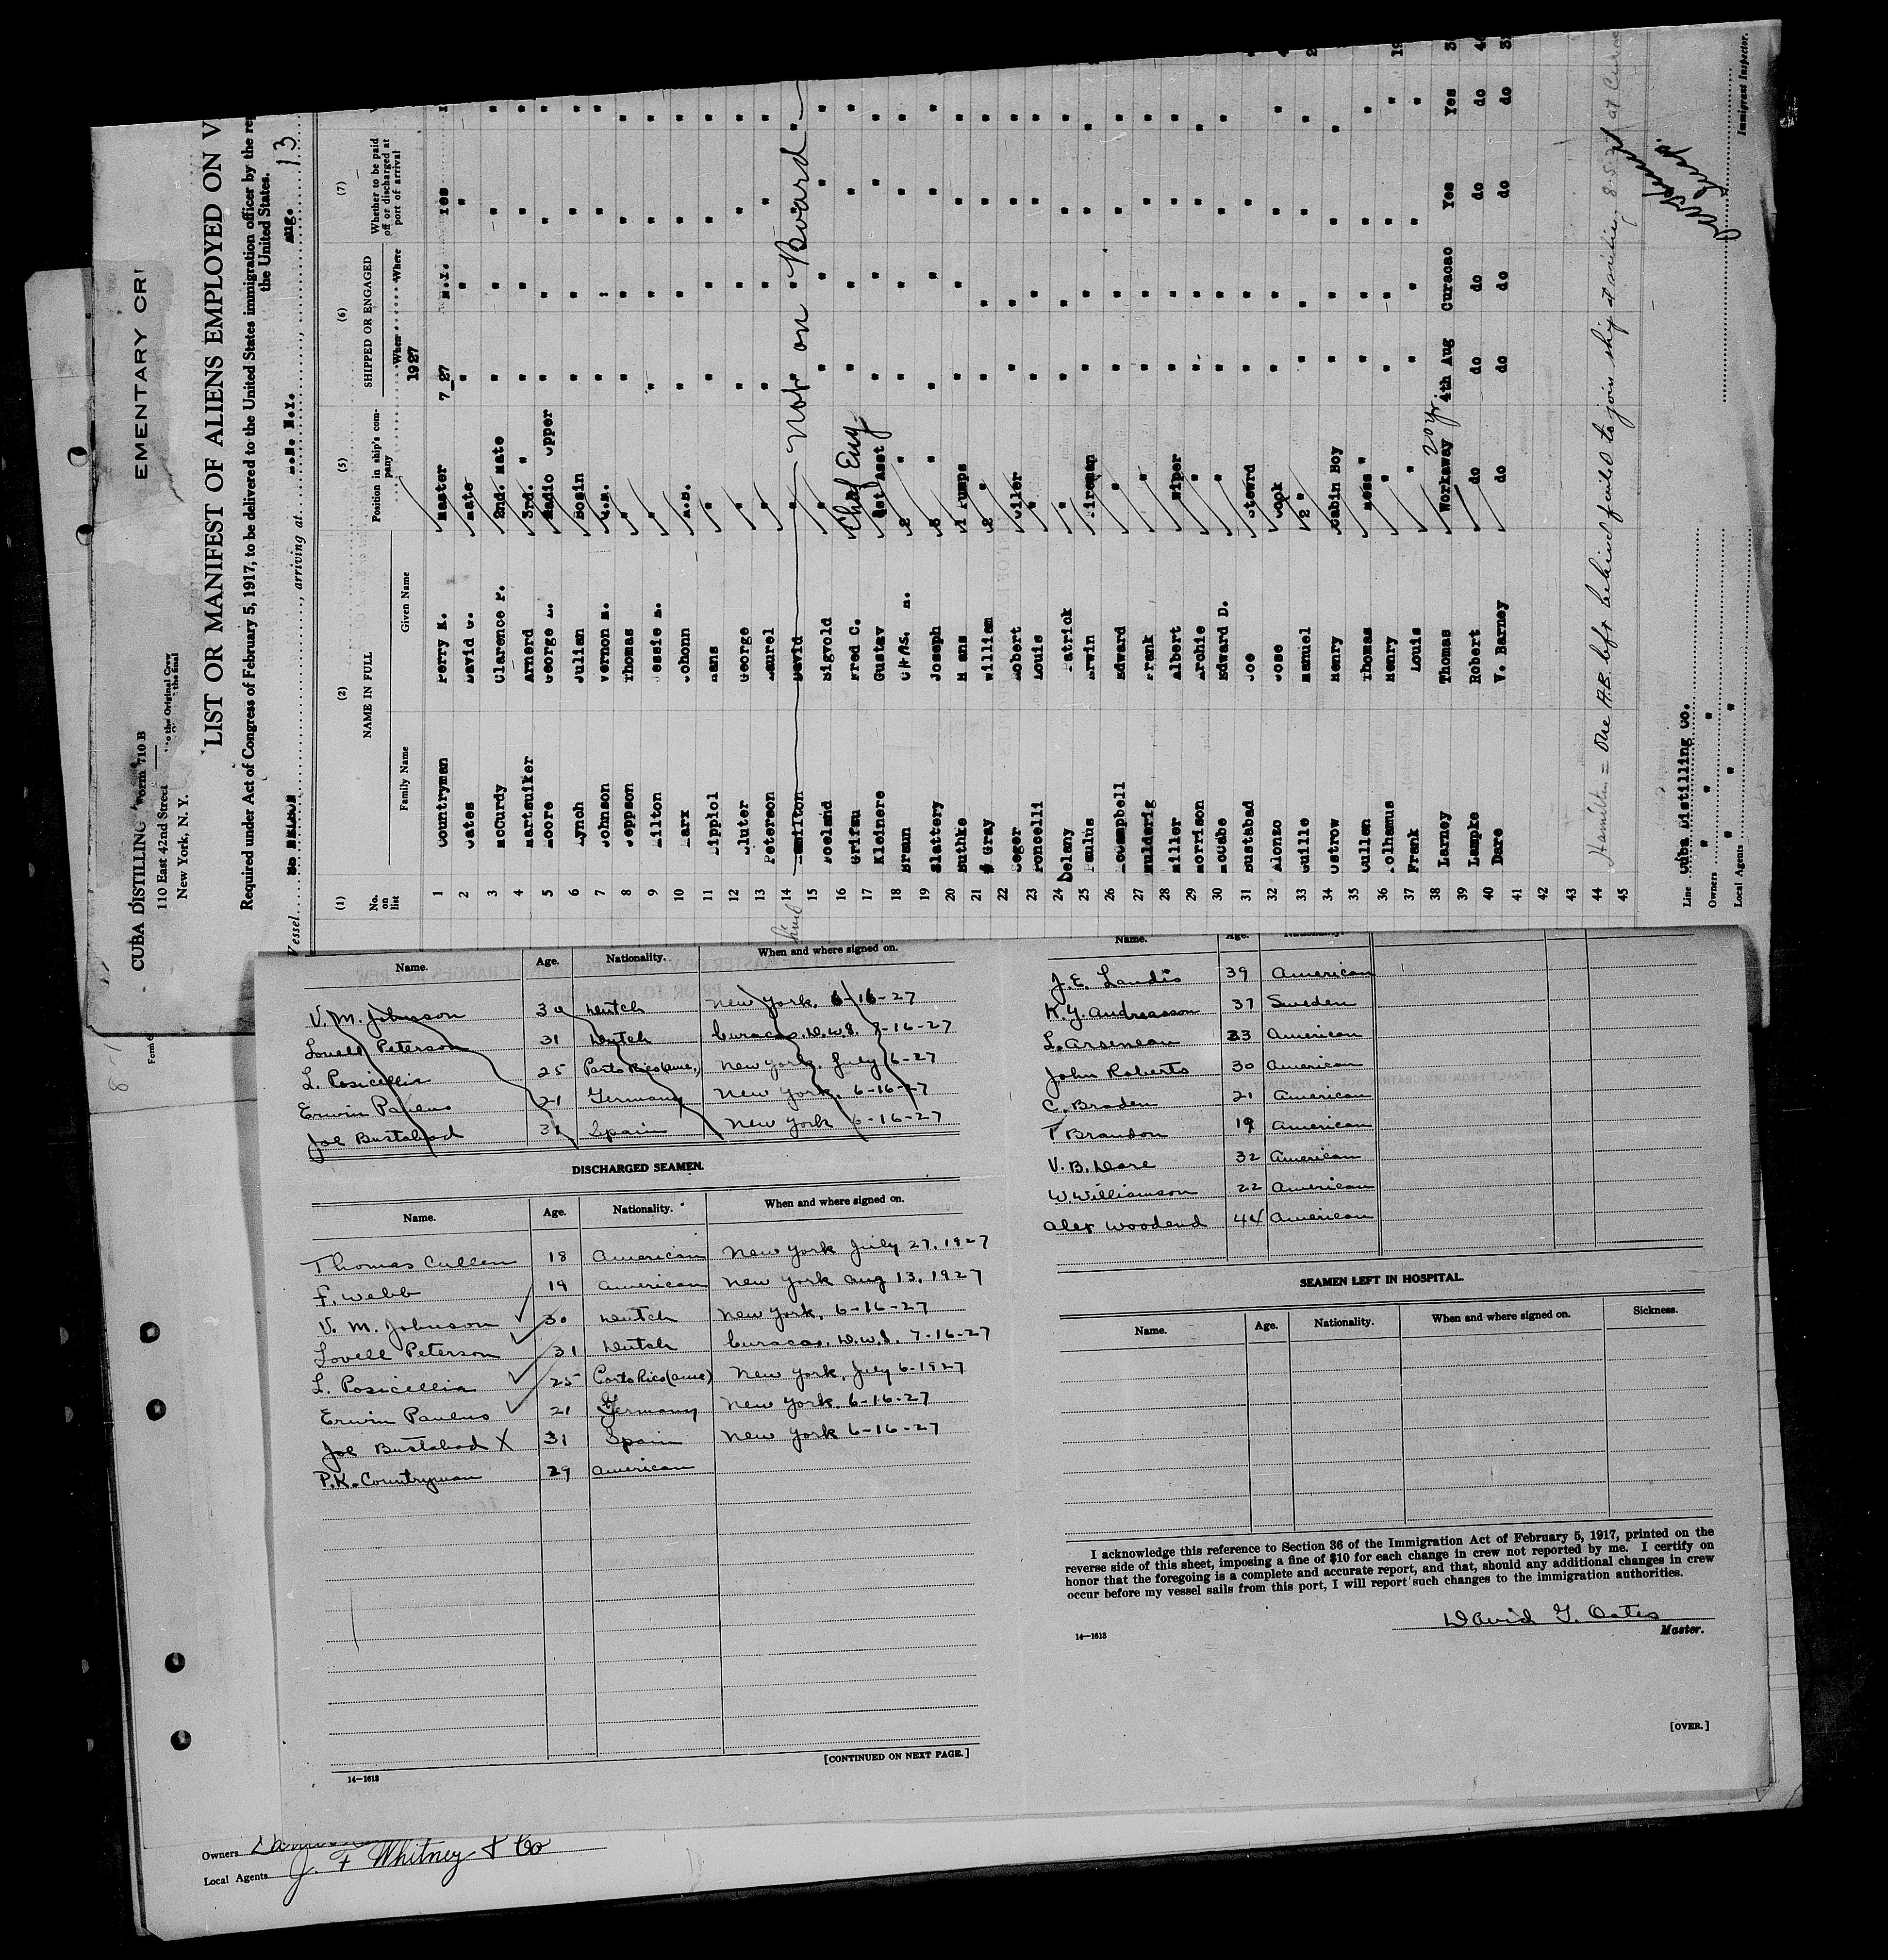 EMENTARY CR
CUBA DISTILLING Form 710 B
110 East 42nd Street
New York, N. Y.
to the Original Crew
LIST OR MANIFEST OF ALIENS EMPLOYED ON V
Required under Act of Congress of February 5, 1917, to be delivered to the United States immigration officer by the rep
the United States.
Vessel , arriving at Aug. 13
(1) (2) (5) (6) (7)
No. on list NAME IN FULL Position in ship's company SHIPPED OR ENGAGED Whether to be paid off or discharged at port of arrival
Family Name Given Name When Where
1927
1 Countryman Perry K. Master 7_27 N.Y. Yes
2 Oates David G. Mate " " " "
3 McCurdy Clarence P. 2nd. Mate " " " "
4 Martsuiker Arnerd 3rd. " " " " "
5 Moore George L. Radio Opper " " " "
6 Lynch Julian Bosin " " " "
7 Johnson Vernon M. " " " "
8 Jeppson Thomas " " " " "
9 Hilton Jessie " " " " "
10 Marx Johonn A.B. " " " "
11 Lippiol Hans " " " " "
12 Cluter George " " " " "
13 Peterson Laurel " " " " "
14 Hamilton David Not on Board
15 Boeland Sigvold " " " " "
16 Grifsu Fred C. Chef Eng. " " " "
17 Kleinere Gustav 1st Asst " " " "
18 Braun Chas. H. 2 " " " " "
19 Slattery Joseph 3 " " " " "
20 Buthke Hans 1 Pumps " " " "
21 Gray William 2 " " " " "
22 Geger Robert Oiler " " " "
23 Poncelli Louis " " " " "
24 Delany Patrick " " " " "
25 Paulus Erwin Fireman " " " "
26 McCampbell Edward " " " " "
27 Mulderig Frank " " " " "
28 Miller Albert Wiper " " " "
29 Morrison Archie " " " " "
30 McCabe Edward D. " " " " "
31 Bustabad Joe Stewrd " " "
32 Alonzo Jose Cook " " " "
33 Guille Manuel 2 " " " " "
34 Ostrow Henry Cabin Boy " " " "
35 Cullen Thomas Mess " " " "
36 Polhamus Henry " " " " "
37 Frank Louis " " " " "
38 Larney Thomas Workaway 4th Aug Curacao Yes Yes
39 Lampke Robert do do do do do
40 Dare V. Barney do do do do do
41
42
43
44 Hamilton = One A.B. left behind failed to join ship at sailing 8-5-27 at
45
Line Cuba Distilling Co.
Owners " " "
Local Agents " " "
Immigrant Inspector.
Name. Age. Nationality. When and where signed on.
V. M. Johnson 30 Dutch New York. 6-16-27
Lovell Peterson 31 Dutch Curacao, D.W.I. 7-16-27
L. Posicellia 25 Porto Rico (Amer.) New York, July 6-27
Erwin Paulus 21 Germany New York. 6-16-27
Joe Bustabad 31 Spain New York 6-16-27
DISCHARGED SEAMEN.
Name. Age. Nationality. When and where signed on.
Thomas Cullen 18 American New York July 27, 1927
F. Webb 19 American New York Aug 13, 1927
V. M. Johnson 30 Dutch New York, 6-16-27
Lovell Peterson 31 Dutch Curacao, D.W.I. 7-16-27
L. Posicellia 25 Porto Rico (Amer) New York, July 6-1927
Erwin Paulus 21 Germany New York. 6-16-27
Joe Bustabad X 31 Spain New York 6-16-27
P.K. Countryman 29 American
[CONTINUED ON NEXT PAGE.]
14—1613
Name. Age. Nationality.
J. E. Landis 39 American
K. Y. Andreasson 37 Sweden
L. Arseneau 33 American
John Roberts 30 American
C. Braden 21 American
T Brandon 19 American
V. B. Dare 32 American
W. Williamson 22 American
Alex Woodend 44 American
SEAMEN LEFT IN HOSPITAL.
Name. Age. Nationality. When and where signed on. Sickness.
I acknowledge this reference to Section 36 of the Immigration Act of February 5, 1917, printed on the
reverse side of this sheet, imposing a fine of $10 for each change in crew not reported by me. I certify on
honor that the foregoing is a complete and accurate report, and that, should any additional changes in crew
occur before my vessel sails from this port, I will report such changes to the immigration authorities.
David G. Oates
Master.
14—1613
[OVER.]
Owners
Local Agents J. F Whitney & Co